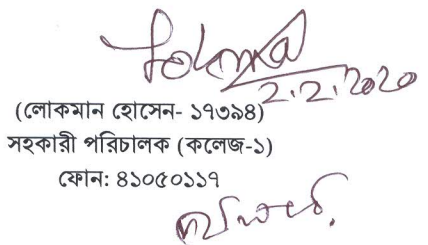 2.2.2020
(লোকমান হোসেন- ১৭৩৯৪)
সহকারী পরিচালক (কলেজ-১)
ফোন: ৪১০৫০১১৭